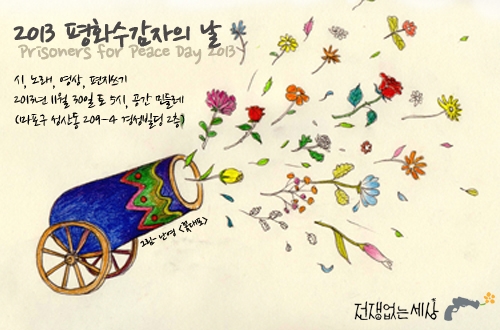 2013 평화수감자의 날
Prisoners for Peace Day 2013
시, 노래, 영상, 편지쓰기
2013년 11월 30일 토 5시, 공간 민들레
(마포구 성산동 209-4 경성빌딩 2층)
그림- 난영 <꽃대포>
전쟁없는세상